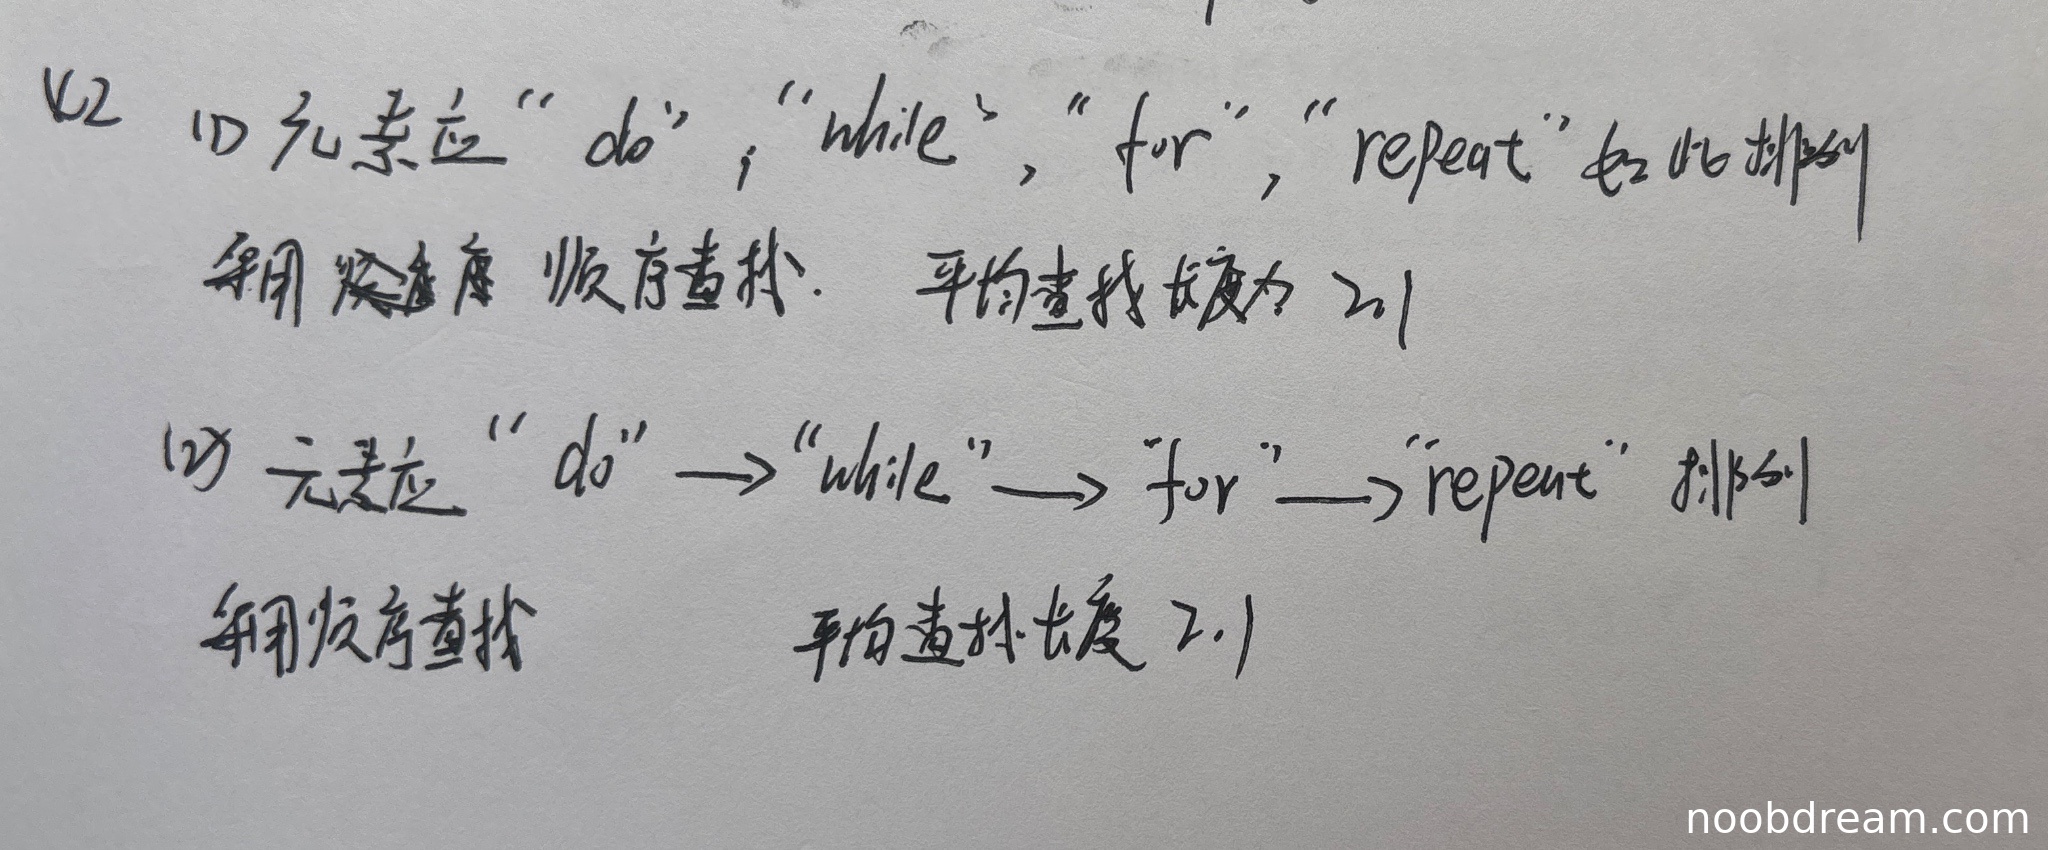 42 (1) 元素应 “do”, “while”, “for”, “repeat” 如此排列
采用 顺序查找. 平均查找长度为 2.1
(2) 元素应 “do” → “while” → “for” → “repeat” 排列
采用顺序查找 平均查找长度 2.1
noobdream.com